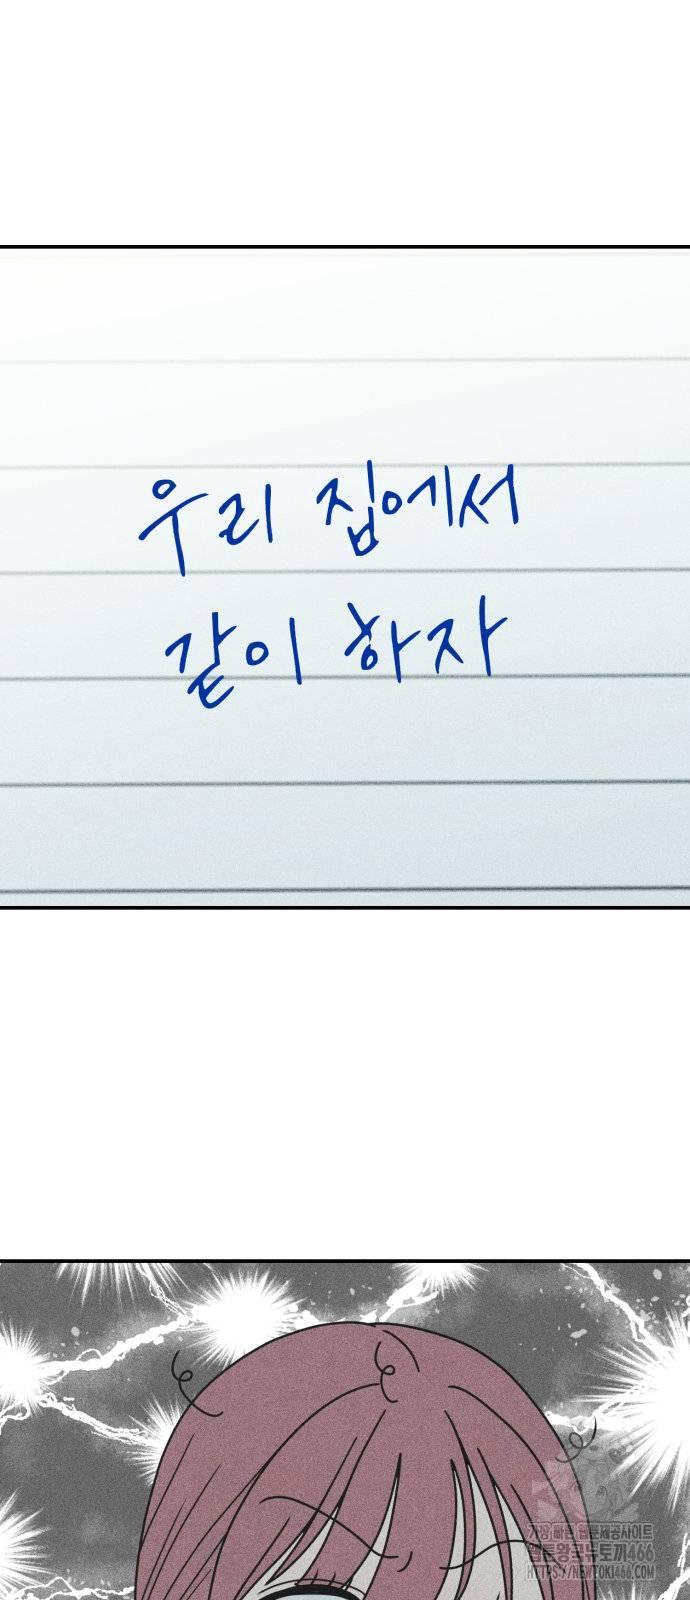 우리 집에서
같이 하자
가장 빠른 웹툰제공사이트
웹툰왕국뉴토끼466
HTTPS://NEWTOKI466.COM